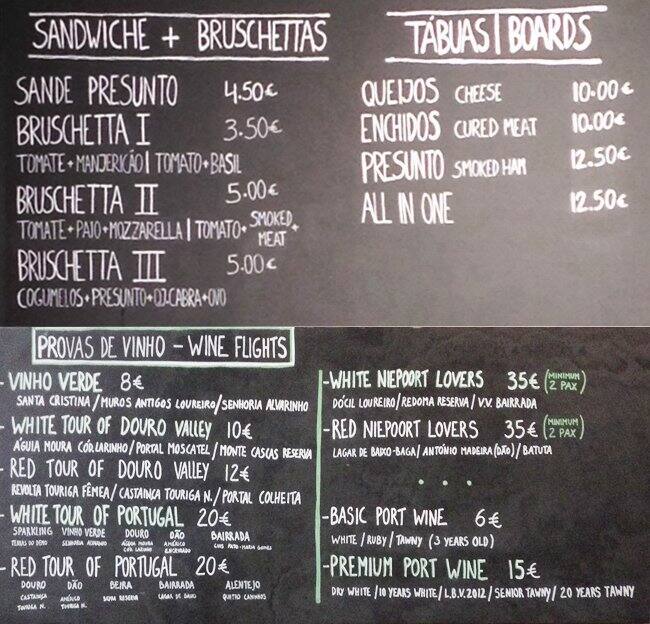 SANDWICHE + BRUSCHETTAS
SANDE PRESUNTO 4.50€
BRUSCHETTA I 3.50€
TOMATE+MANJERICÃO | TOMATO+BASIL
BRUSCHETTA II 5.00€
TOMATE+PAIO+MOZZARELLA | TOMATO+ SMOKED MEAT+
BRUSCHETTA III 5.00€
COGUMELOS+PRESUNTO+QJ.CABRA+OVO
TÁBUAS | BOARDS
QUEIJOS CHEESE 10.00€
ENCHIDOS CURED MEAT 10.00€
PRESUNTO SMOKED HAM 12.50€
ALL IN ONE 12.50€
PROVAS DE VINHO – WINE FLIGHTS
- VINHO VERDE 8€
SANTA CRISTINA / MUROS ANTIGOS LOUREIRO / SENHORIA ALVARINHO
- WHITE TOUR OF DOURO VALLEY 10€
ÁGUIA MOURA CÓD.LARINHO / PORTAL MOSCATEL / MONTE CASCAS RESERVA
- RED TOUR OF DOURO VALLEY 12€
REVOLTA TOURIGA FÊMEA / CASTAINÇA TOURIGA N. / PORTAL COLHEITA
- WHITE TOUR OF PORTUGAL 20€
SPARKLING VINHO VERDE DOURO DÃO BAIRRADA
TERRAS DO DEMO SENHORIA ALVARINHO ÁGUIA MOURA CÓD. LARINHO AMÉRICO ENCRUZADO LUIS PATO-MARIA GOMES
- RED TOUR OF PORTUGAL 20€
DOURO DÃO BEIRA BAIRRADA ALENTEJO
CASTAINÇA TOURIGA N. AMÉRICO TOURIGA N. BEYRA RESERVA LAGAR DE BAIXO QUATRO CAMINHOS
- WHITE NIEPOORT LOVERS 35€ (MINIMUM 2 PAX)
DÓCIL LOUREIRO / REDOMA RESERVA / V.V. BAIRRADA
- RED NIEPOORT LOVERS 35€ (MINIMUM 2 PAX)
LAGAR DE BAIXO-BAGA / ANTÓNIO MADEIRA (DÃO) / BATUTA
. . .
- BASIC PORT WINE 6€
WHITE / RUBY / TAWNY (3 YEARS OLD)
- PREMIUM PORT WINE 15€
DRY WHITE / 10 YEARS WHITE / L.B.V. 2012 / SENIOR TAWNY / 20 YEARS TAWNY